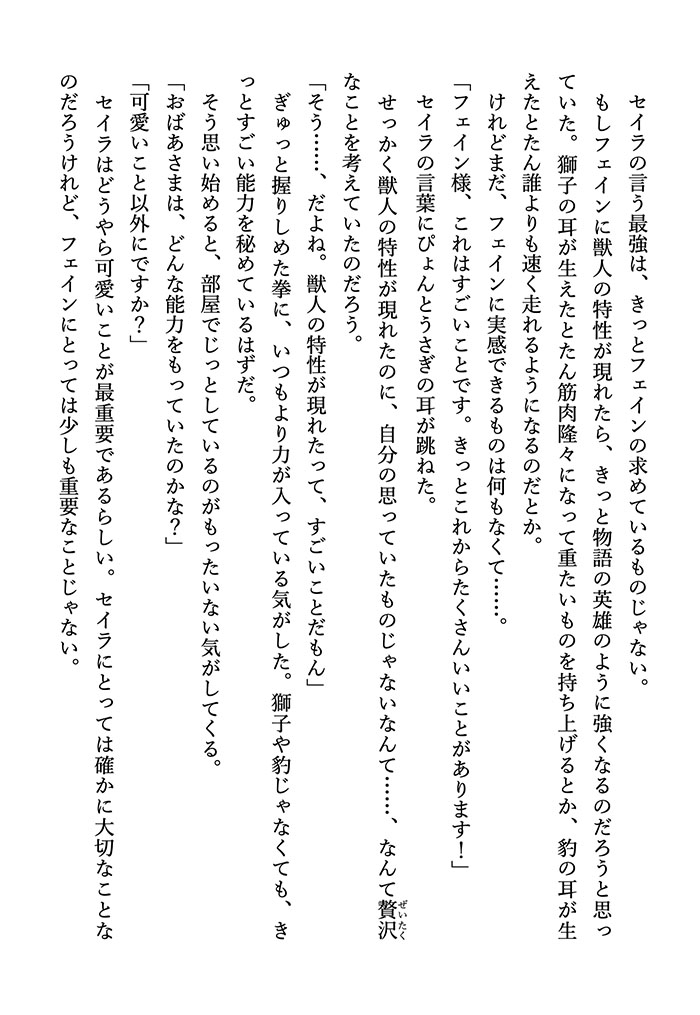 セイラの言う最強は、きっとフェインの求めているものじゃない。
もしフェインに獣人の特性が現れたら、きっと物語の英雄のように強くなるのだろうと思っ
ていた。獅子の耳が生えたとたん筋肉隆々になって重たいものを持ち上げるとか、豹の耳が生
えたとたん誰よりも速く走れるようになるのだとか。
けれどまだ、フェインに実感できるものは何もなくて……。
「フェイン様、これはすごいことです。きっとこれからたくさんいいことがあります！」
セイラの言葉にぴょんとうさぎの耳が跳ねた。
せっかく獣人の特性が現れたのに、自分の思っていたものじゃないなんて……、なんて贅沢
ぜいたく
なことを考えていたのだろう。
「そう……、だよね。獣人の特性が現れたって、すごいことだもん」
ぎゅっと握りしめた拳に、いつもより力が入っている気がした。獅子や豹じゃなくても、き
っとすごい能力を秘めているはずだ。
そう思い始めると、部屋でじっとしているのがもったいない気がしてくる。
「おばあさまは、どんな能力をもっていたのかな？」
「可愛いこと以外にですか？」
セイラはどうやら可愛いことが最重要であるらしい。セイラにとっては確かに大切なことな
のだろうけれど、フェインにとっては少しも重要なことじゃない。